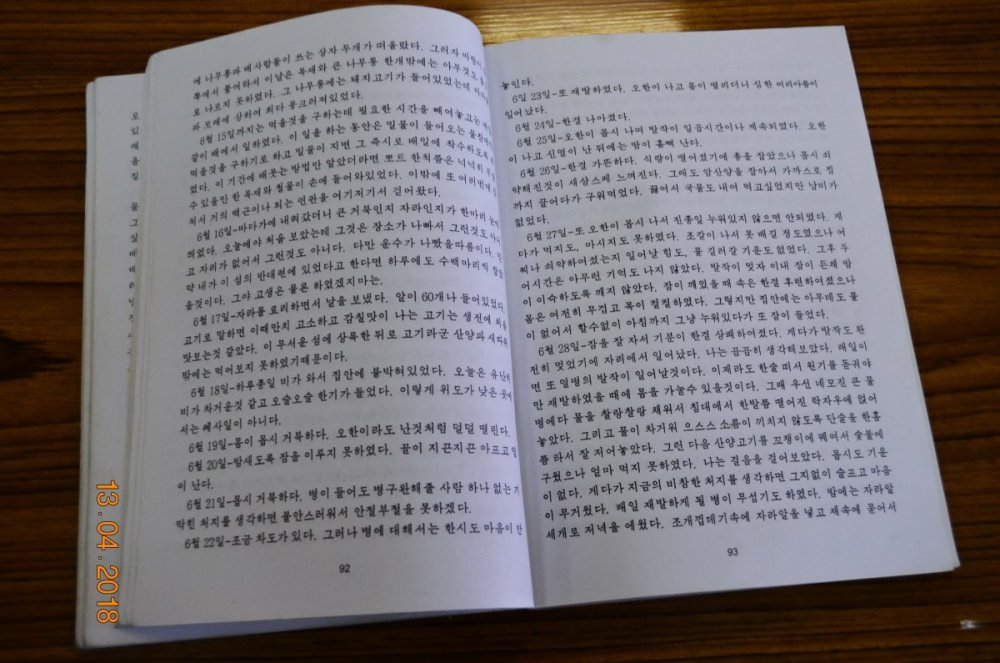 에 나무통과 배사람들이 쓰는 상자 두개가 떠올랐다. 그러자 바람이
쪽에서 불어와서 이날은 목재와 큰 나무통 한개밖에는 아무것도
로 나르지 못하였다. 그 나무통에는 돼지고기가 들어있었는데 바다물
과 모래에 상하여 죄다 뭉크러져있었다.
6월 15일까지는 먹을것을 구하는데 필요한 시간을 빼여놓고는
같이 배에서 일하였다. 이 일을 하는 동안은 밀물이 들어오는
먹을것을 구하기로 하고 밀물이 지면 그 즉시로 배일에 착수하도록
였다. 이 기간에 배뭇는 방법만 알았더라면 뽀트 한척쯤은 넉넉히
수있을만 한 목재와 철물이 손에 들어와있었다. 이밖에 또 여러번에
쳐서 거의 백근이나 되는 연판을 여기저기서 걷어왔다.
6월 16일-바다가에 내려갔더니 큰 거북인지 자라인지가 한마리 눈에
띄였다. 오늘에야 처음 보았는데 그것은 장소가 나빠서 그런것도 아니
고 자리가 없어서 그런것도 아니다. 다만 운수가 나빴을따름이다. 만
약 내가 이 섬의 반대편에 있었다고 한다면 하루에도 수백마리씩 잡았
을것이다. 그야 고생은 물론 하였겠지마는.
6월 17일-자라를 료리하면서 날을 보냈다. 알이 60개나 들어있었다.
고기로 말하면 이때만치 고소하고 감칠맛이 나는 고기는 생전에 처음
맛보는것 같았다. 이 무서운 섬에 상륙한 뒤로 고기라군 산양과 새따위
밖에는 먹어보지 못하였기때문이다.
6월 18일-하루종일 비가 와서 집안에 붙박혀있었다. 오늘은 유난히
비가 차거운것 같고 오슬오슬 한기가 들었다. 이렇게 위도가 낮은 곳에
서는 례사일이 아니다.
6월 19일-몸이 몹시 거북하다. 오한이라도 난것처럼 덜덜 떨린다.
6월 20일-밤새도록 잠을 이루지 못하였다. 골이 지끈지끈 아프고 열
이 난다.
6월 21일-몹시 거북하다. 병이 들어도 병구완해줄 사람 하나 없는 기
막힌 처지를 생각하면 불안스러워서 안절부절을 못하겠다.
6월 22일-조금 차도가 있다. 그러나 병에 대해서는 한시도 마음이 안
92
놓인다.
6월 23일-또 재발하였다. 오한이 나고 몸이 떨리더니 심한 머리아픔이
일어났다.
6월 24일-한결 나아졌다.
6월 25일-오한이 몹시 나며 발작이 일곱시간이나 계속되였다. 오한
이 나고 신열이 난 뒤에는 땀이 흠뻑 난다.
6월 26일-한결 가뜬하다. 식량이 떨어졌기에 총을 잡았으나 몹시 쇠
약해진것이 새삼스레 느껴진다. 그래도 암산양을 잡아서 가까스로 집
까지 끌어다가 구워먹었다. 끓여서 국물도 내여 먹고싶었지만 남비가
없었다.
6월 27일-또 오한이 몹시 나서 진종일 누워있지 않으면 안되였다. 게
다가 먹지도, 마시지도 못하였다. 조갈이 나서 못 배길 정도였으나 어
찌나 쇠약하여졌는지 일어날 힘도, 물 길러갈 기운도 없었다. 그후 두
어시간은 아무런 기억도 나지 않았다. 발작이 멎자 이내 잠이 든채 밤
이 이슥하도록 깨지 않았다. 잠이 깨였을 때 속은 한결 후련하여졌으나
몸은 여전히 무겁고 목이 컬컬하였다. 그렇지만 집안에는 아무데도 물
이 없어서 할수없이 아침까지 그냥 누워있다가 또 잠이 들었다.
6월 28일-잠을 잘 자서 기분이 한결 상쾌하여졌다. 게다가 발작도 완
전히 멎었기에 자리에서 일어났다. 나는 곰곰히 생각해보았다. 래일이
면 또 열병의 발작이 일어날것이다. 이제라도 한술 떠서 원기를 돋궈야
만 재발하였을 때에 몸을 가눌수 있을것이다. 그래 우선 네모진 큰 물
병에다 물을 찰랑찰랑 채워서 침대에서 한발쯤 떨어진 탁자우에 얹어
놓았다. 그리고 물이 차거워 으스스 소름이 끼치지 않도록 단술을 한홉
쯤 타서 잘 저어놓았다. 그런 다음 산양고기를 꼬챙이에 꿰여서 숯불에
구웠으나 얼마 먹지 못하였다. 나는 걸음을 걸어보았다. 몹시도 기운
이 없다. 게다가 지금의 비참한 처지를 생각하면 그지없이 슬프고 마음
이 무거웠다. 래일 재발하게 될 병이 무섭기도 하였다. 밤에는 자라알
세개로 저녁을 에웠다. 조개껍데기속에 자라알을 넣고 재속에 묻어서
93
13.04.2018